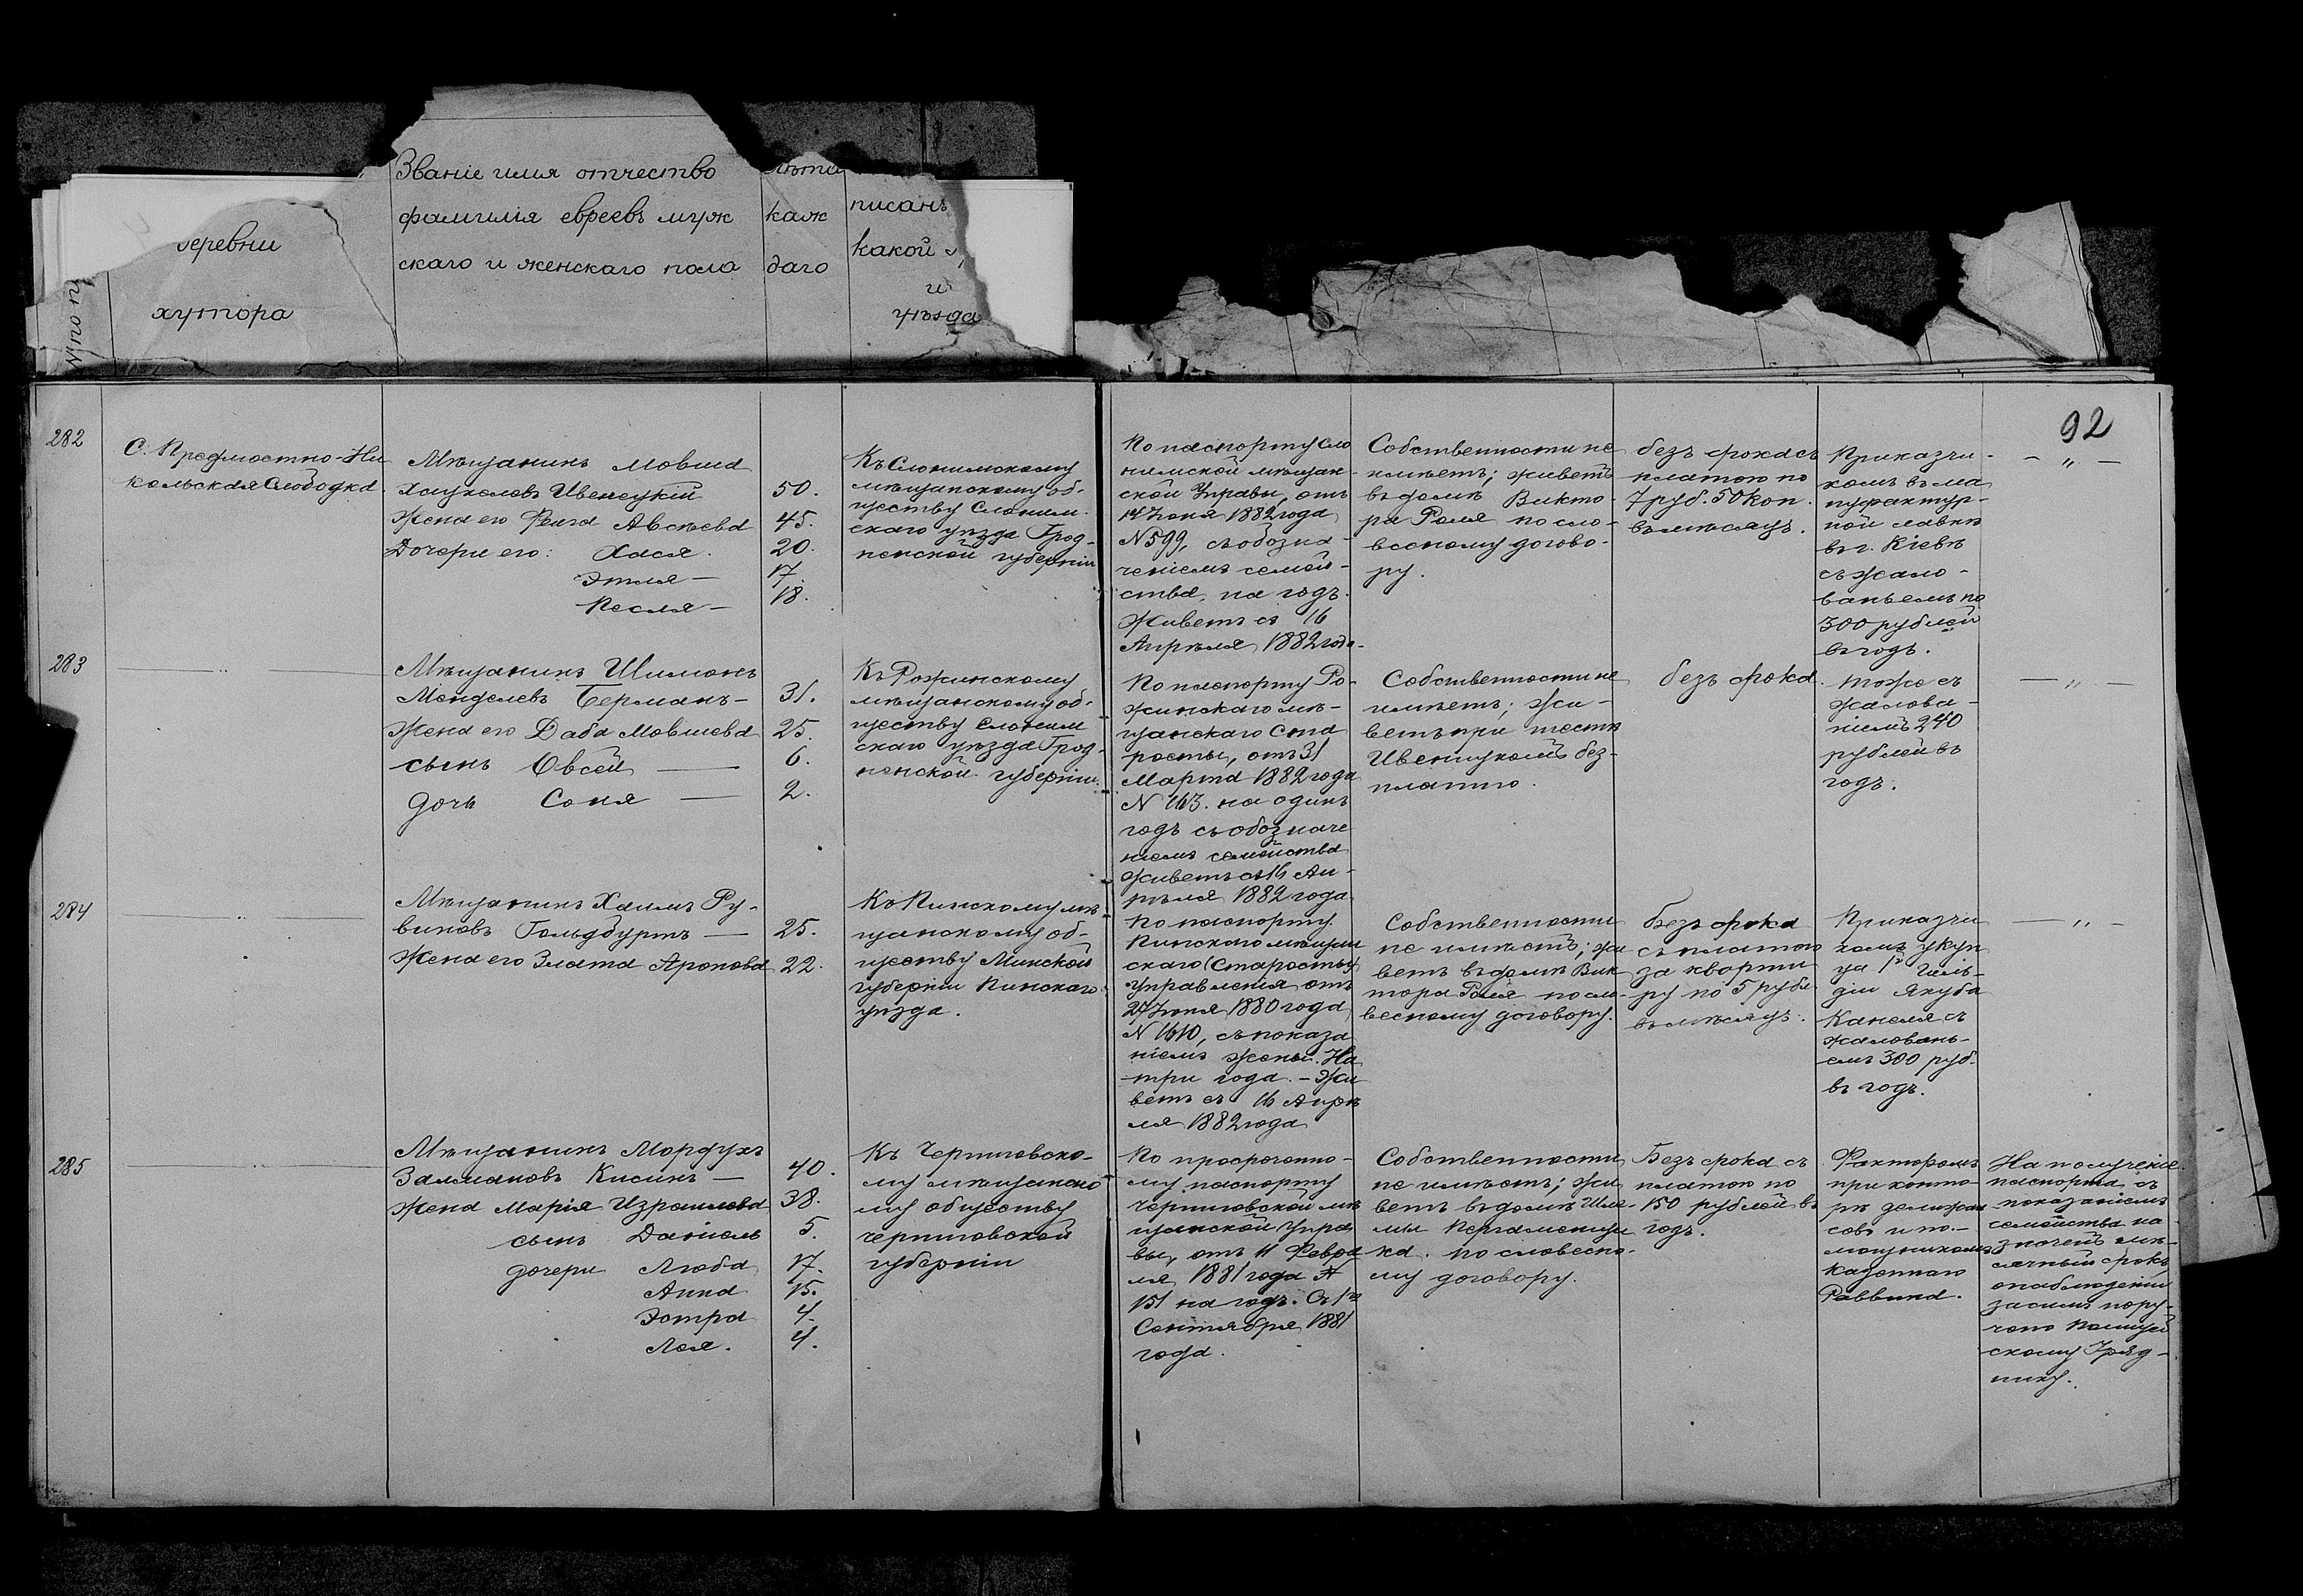 деревни
хутора
Званіе имя отчество
фамилія евреевъ муж
скаго и женскаго пола
каж
даго
писанъ
какой
и
уѣзда
92
282
С. Предмостно-Ни
кольская Слободка
Мѣщанинъ Мовша
Ивенецкій 50.
Жена его Фейга Авсѣева 45.
Дочери его: Хася. 20.
Этля — 17
Песля — 18.
Къ Слонимскому
мѣщанскому об-
ществу Слоним-
скаго уѣзда Грод-
ненской губерніи
По паспорту Сло
нимской мѣщан-
ской Управы, отъ
14 Іюня 1882 года
N 599, съ обозна-
ченіемъ семей-
ства, на годъ.
Живетъ съ 16
Апрѣля 1882 года.
Собственности не
имѣетъ; живетъ
въ домѣ Викто-
ра Роля по сло-
весному догово-
ру.
безъ срока съ
платою по
7 руб. 50 коп.
въ мѣсяцъ.
Приказчи-
комъ въ ма
нуфактур-
ной лавкѣ
въ г. Кіевѣ
съ жало-
ваньемъ по
300 рублей
въ годъ.
— „ —
283
— „ —
Мѣщанинъ Шимонъ
Менделевъ Берманъ — 31.
Жена его Даба Мовшева 25.
сынъ Овсей — 6.
дочь Соня — 2.
Къ Рожинскому
мѣщанскому об-
ществу Слоним
скаго уѣзда Грод-
ненской губерніи.
По паспорту Ро-
жинскаго мѣ-
щанскаго Ста
росты, отъ 31
Марта 1882 года
N 163. на одинъ
годъ съ обозначе
ніемъ семейства
живетъ съ 16 Ап-
рѣля 1882 года
Собственности не
имѣетъ; жи-
ветъ при тестѣ
Ивенецкомъ без-
платно.
безъ срока.
тоже съ
жалова-
ніемъ 240
рублей въ
годъ.
— „ —
284
— „ —
Мѣщанинъ Хаимъ Ру-
виновъ Гольдбуртъ — 25.
Жена его Злата Аронова 22.
Къ Пинскому мѣ
щанскому об-
ществу Минской
губерніи Пинскаго
уѣзда.
По паспорту
Пинскаго мѣщан
скаго (Старосты)
Управленія отъ
27 Іюня 1880 года
N 1610, съ показа
ніемъ жены. На
три года. — Жи
ветъ съ 16 Апрѣ
ля 1882 года
Собственности
не имѣетъ; жи
ветъ въ домѣ Вик
тора Роля по сло-
весному договору.
Безъ срока
съ платою
за кварти
ру по 5 руб.
въ мѣсяцъ.
Приказчи
комъ у куп
ца 1й Гиль-
діи Якуба
Канеля съ
жаловань-
емъ 300 руб.
въ годъ.
— „ —
285
— „ —
Мѣщанинъ Мордухъ
Залмановъ Кисинъ — 40.
Жена Марія Израилева 38.
сынъ Даніель 5.
дочери Люба 17.
Анна 15.
Эстра 4.
Лея. 4.
Къ Черниговско-
му мѣщанско
му обществу
Черниговской
губерніи
По просроченно-
му паспорту
Черниговской мѣ
щанской Упра
вы, отъ 11 Февра
ля 1881 года N
151 на годъ. Съ 1го
Сентября 1881
года.
Собственности
не имѣетъ; жи
ветъ въ домѣ Шле-
мы Пергаменщи
ка. по словесно-
му договору.
Безъ срока съ
платою по
150 рублей въ
годъ.
Факторомъ
при конто-
рѣ дилижан
совъ и по-
мощникомъ
Казеннаго
Раввина.
На полученіе
паспорта съ
показаніемъ
семейства на
значенъ мѣ-
сячный срокъ
о наблюденіи
за симъ пору-
чено Полицей
скому Уряд-
нику.